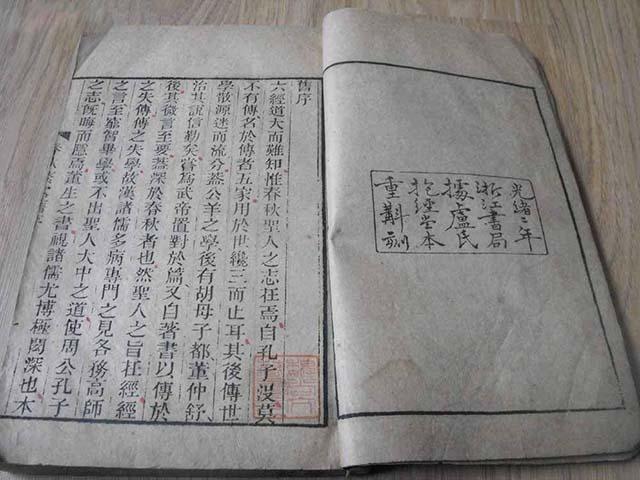 光緒二年
浙江書局
據盧氏
抱經堂本
重斠刻
舊序
六經道大而難知惟春秋聖人之志在焉自孔子沒莫
不有傳名於傳者五家用於世纔三而止耳其後傳世
學散源迷而流分蓋公羊之學後有胡母子都董仲舒
治其說信勤矣嘗為武帝置對於篇又自著書以傳於
後其微言至要蓋深於春秋者也然聖人之旨在經經
之失傳傳之失學故漢諸儒多病專門之見各務高師
之言至窮智畢學或不出聖人大中之道使周公孔子
之志既晦而隱焉董生之書視諸儒尤博極閎深也本